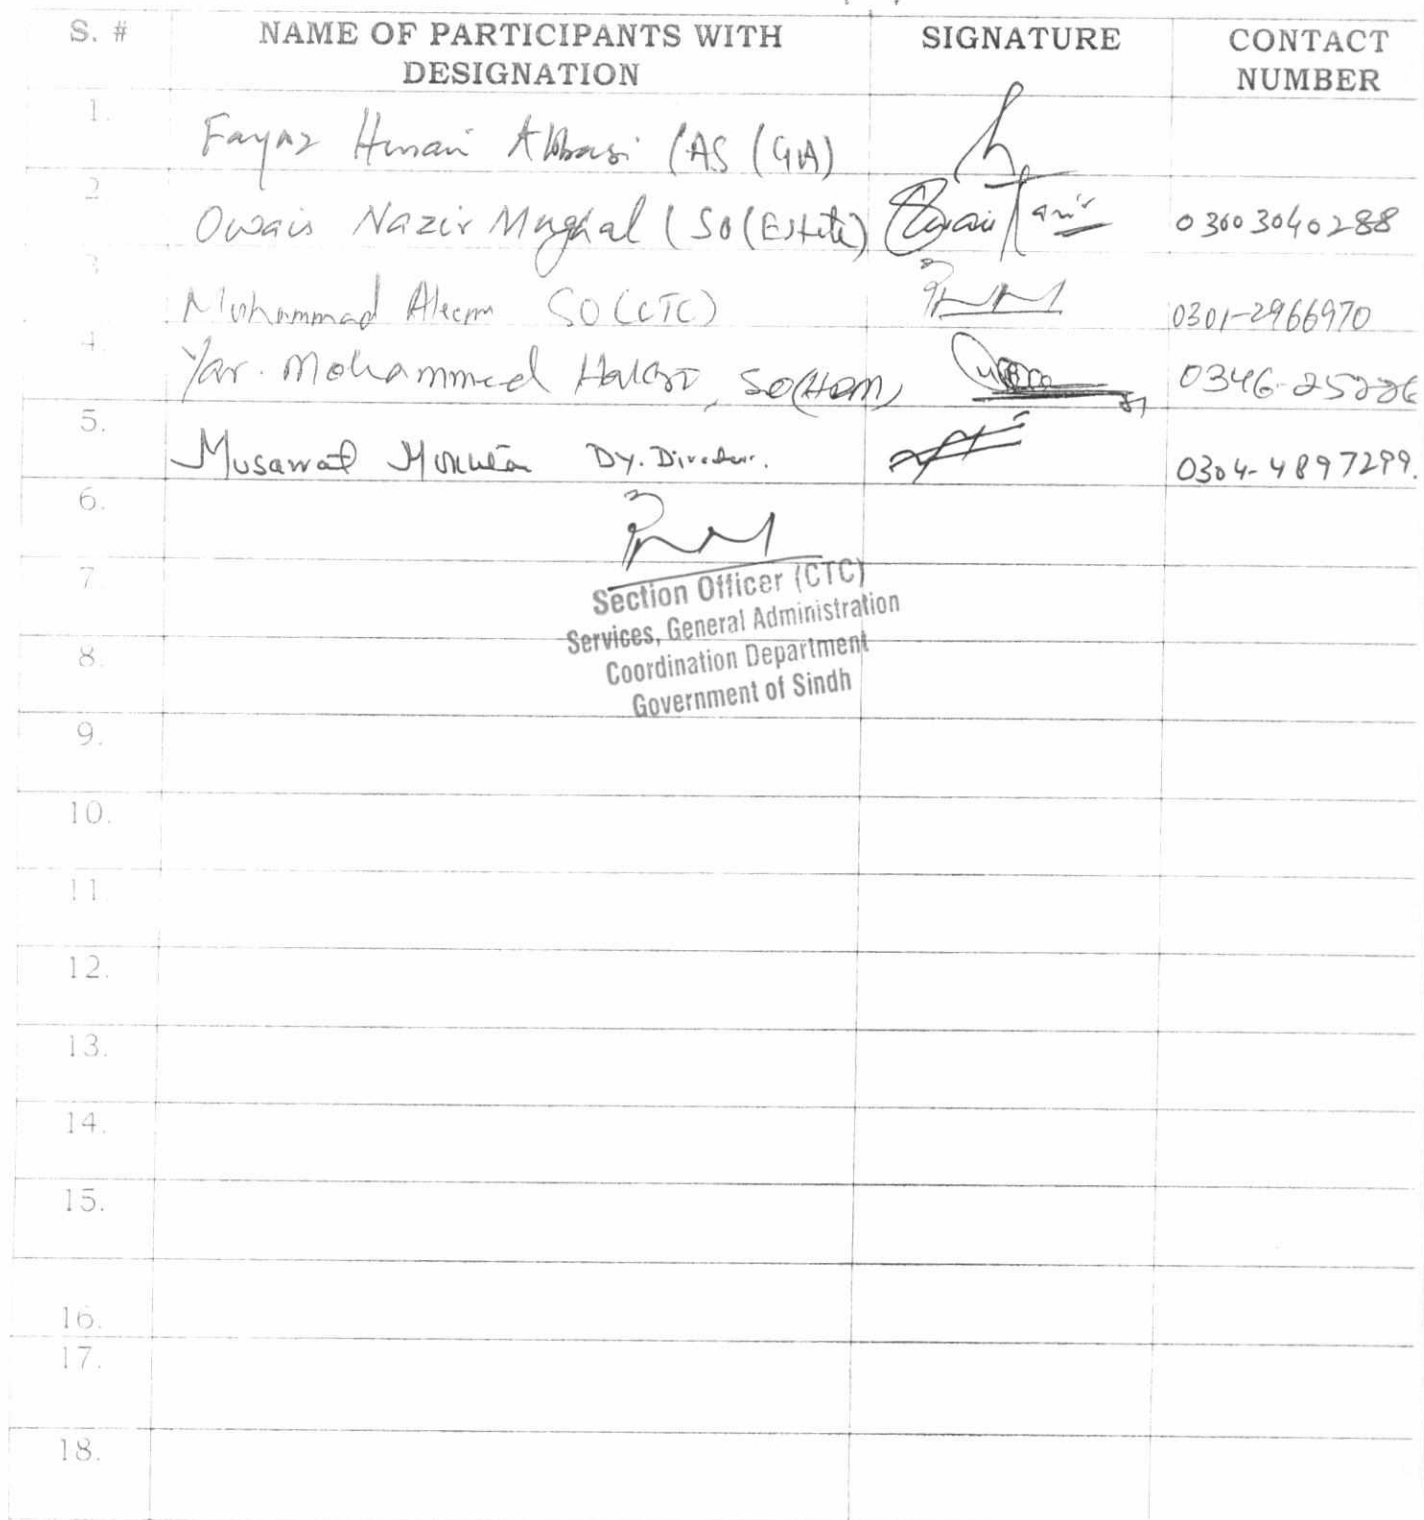 S. # NAME OF PARTICIPANTS WITH DESIGNATION SIGNATURE CONTACT NUMBER
1. Fayaz Hussain Abbasi (AS (GA)
2 Owais Nazir Mughal (SO(Estate) 03003040288
3 Muhammad Aleem SO(CTC) 0301-2966970
4. Yar. Mohammed SO( 0346-
5. Musarrat Dy. Director. 0304-4897299.
6.
7
Section Officer (CTC)
Services, General Administration
8.
Coordination Department
Government of Sindh
9.
10.
11
12.
13.
14.
15.
16.
17.
18.